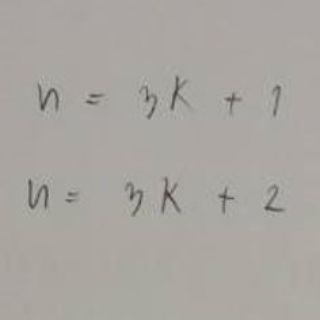 n = 3K + 1
n = 3K + 2